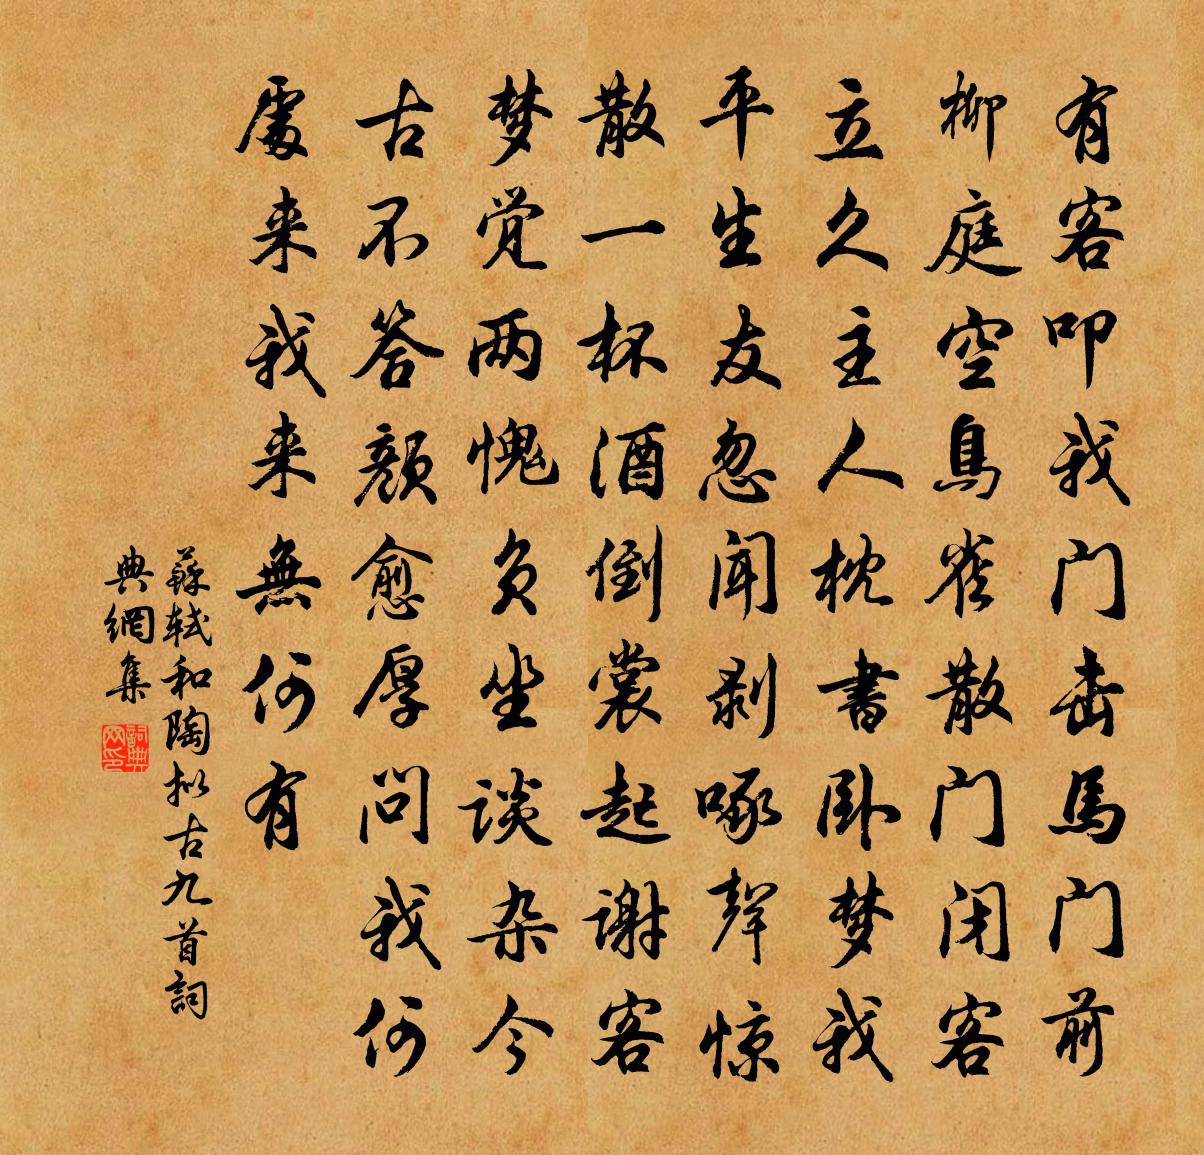 有客叩我门击馬门前
柳庭空鳥雀散门闭客
立久主人枕書卧梦我
平生友忽闻剥啄聲惊
散一杯酒倒裳起谢客
梦觉两愧负坐谈杂今
古不答颜愈厚问我何
處来我来無何有
蘇轼和陶拟古九首詞
典網集
詞典网印